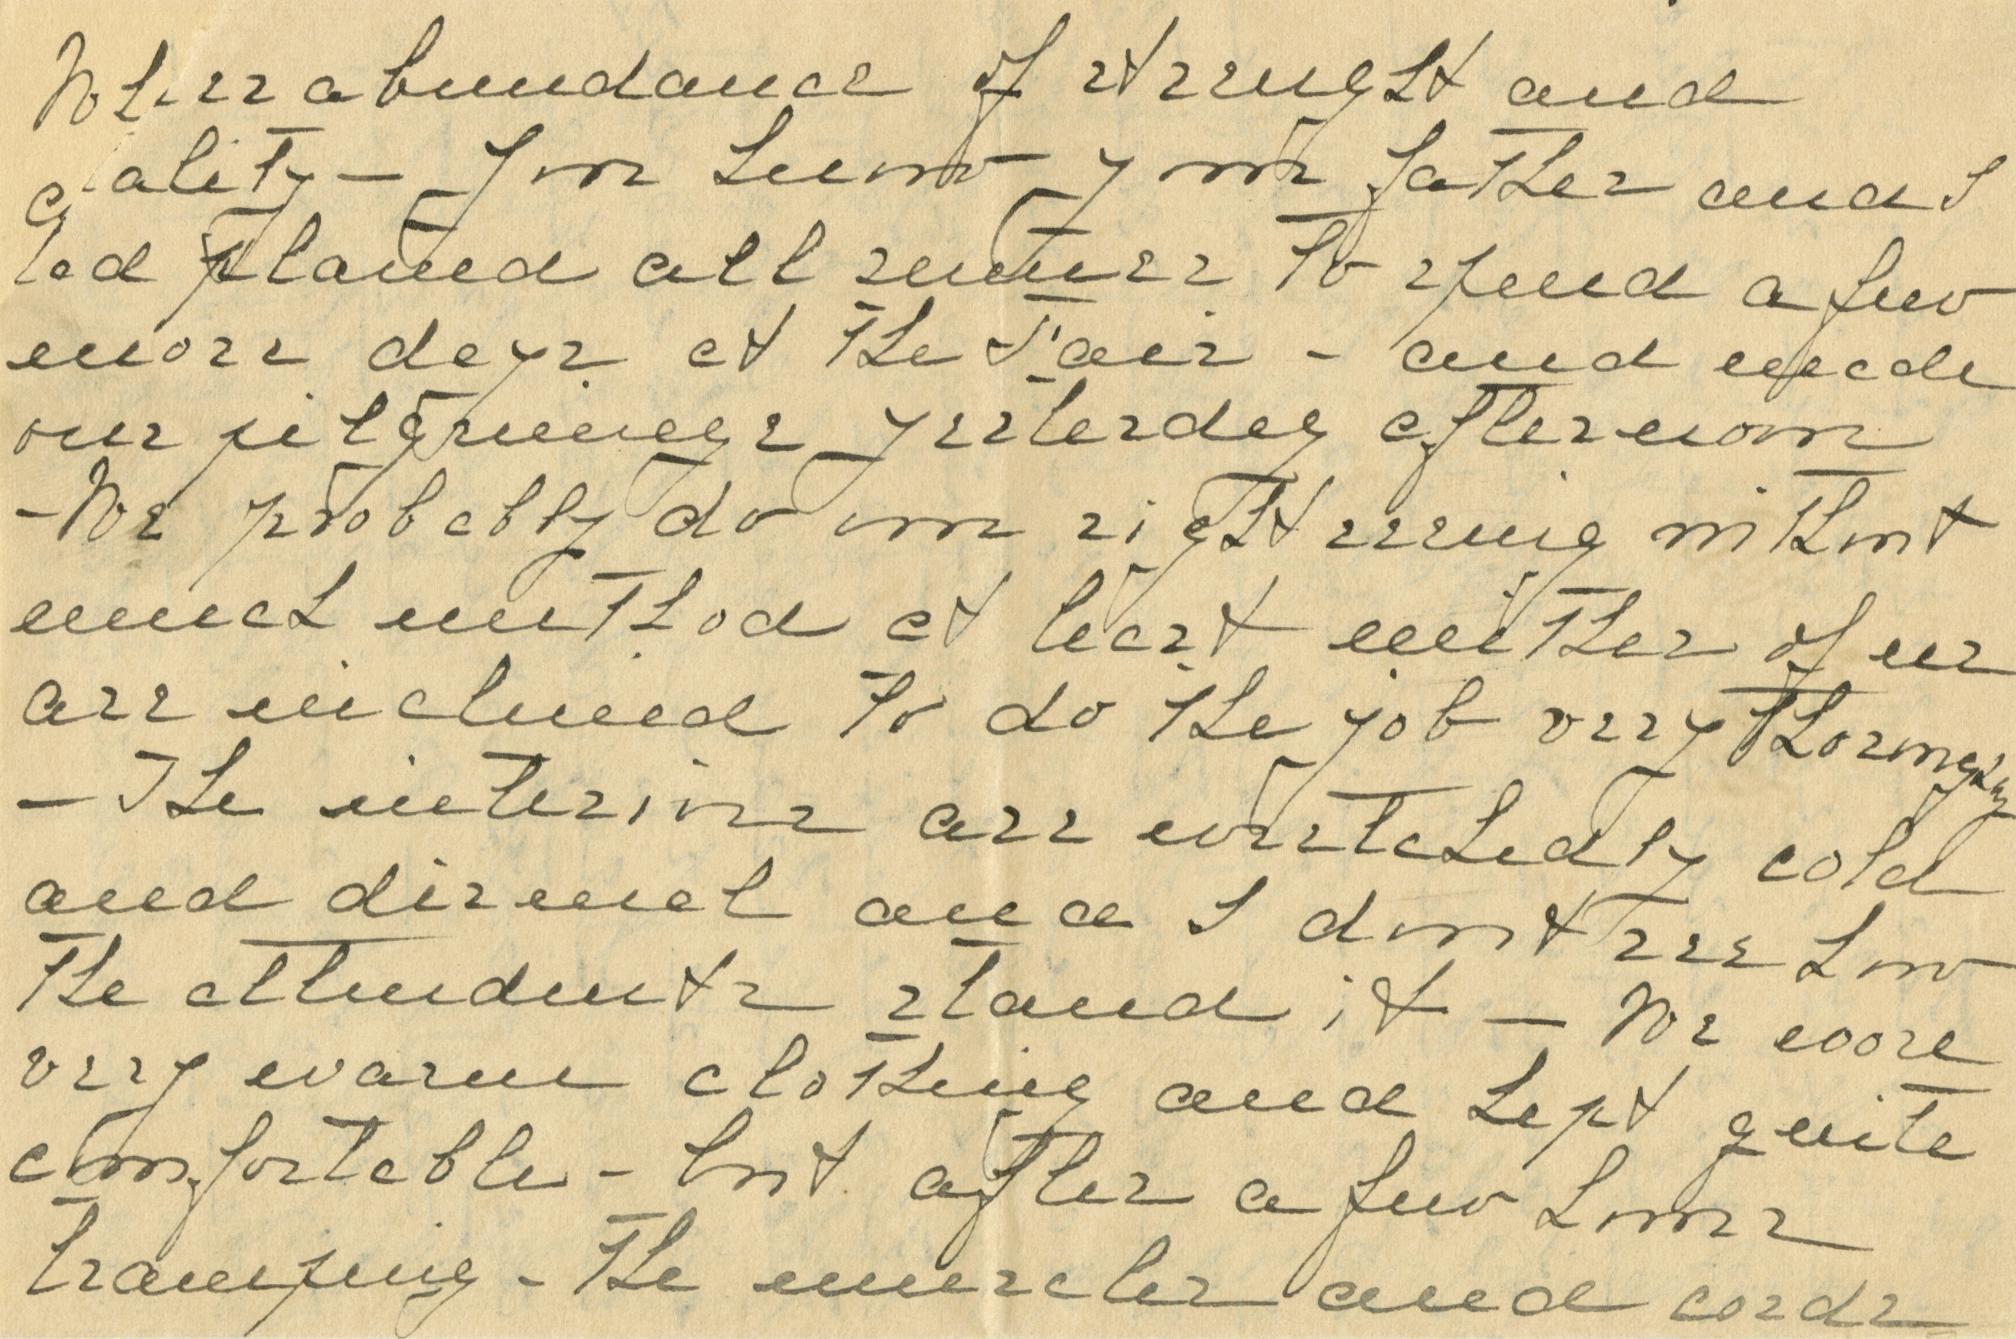 Where abundance of strenght and
quality – You know your father and I
had planed all summer to spend a few
more days at the Fair – and made
our pilgrimage yesterday afternoon
– We probably do our sight seeing without
much method at least neither of us
are inclined to do the job very thoroughly
– The interiors are wretchedly cold
and dismal and I dont see how
the attendents stand it – We wore
very warm clothing and kept quite
comfortable – but after a few hours
tramping – the muscles and cords